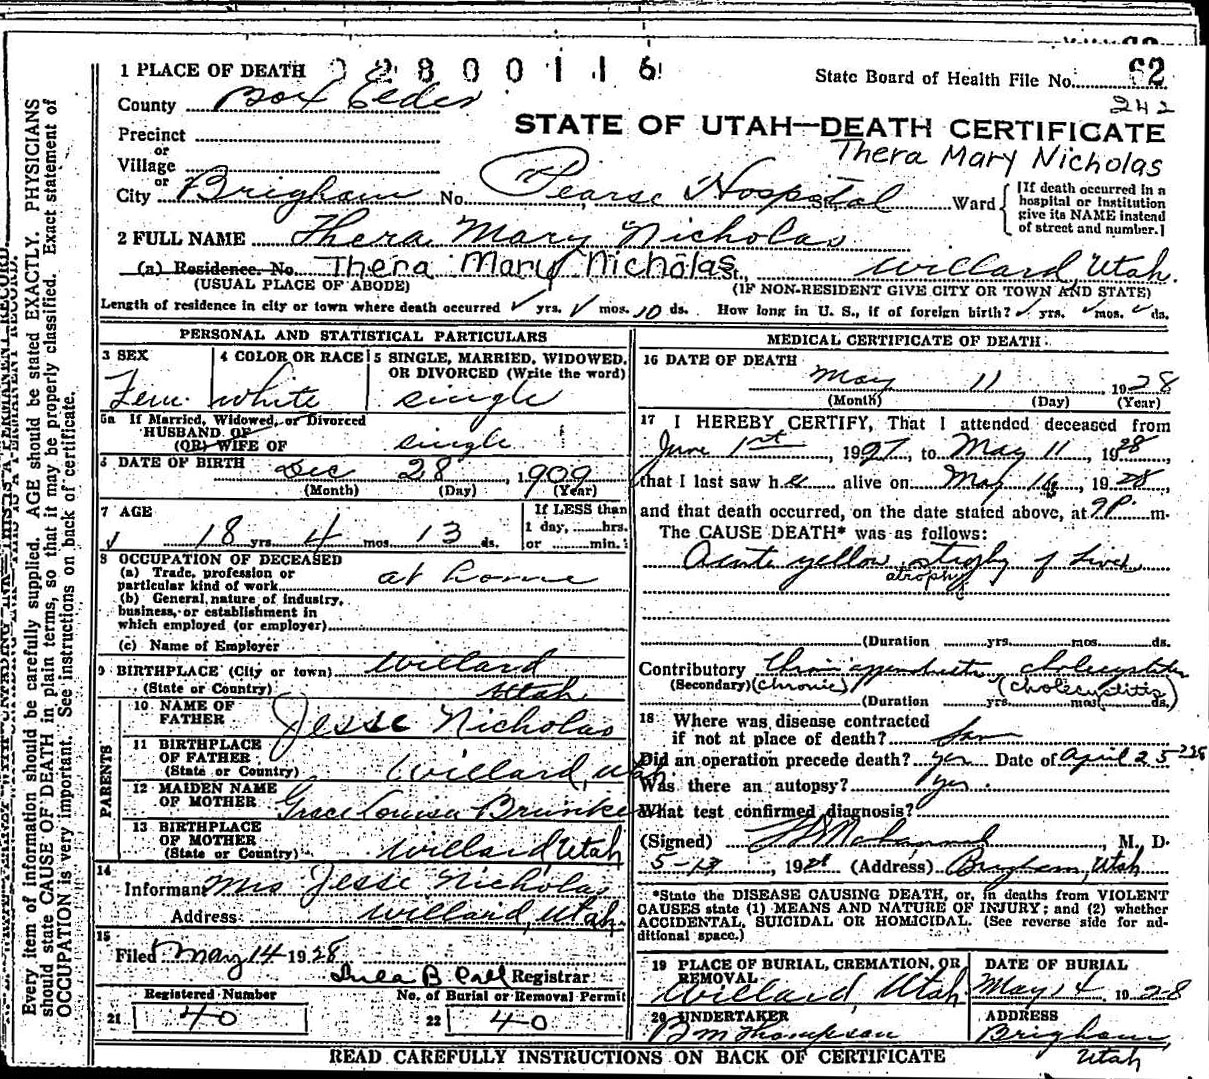 62
1 PLACE OF DEATH 2 2 8 0 0 1 1 6 State Board of Health File No. 62
County Box Elder 242
STATE OF UTAH—DEATH CERTIFICATE
Precinct
or
Village
Thera Mary Nicholas
or
City Brigham No. Pearse Hospital St., Ward
[If death occurred in a hospital or institution give its NAME instead of street and number.]
2 FULL NAME Thera Mary Nicholas
(a) Residence. No. Thera Mary Nicholas St., Willard, Utah.
(USUAL PLACE OF ABODE) (IF NON-RESIDENT GIVE CITY OR TOWN AND STATE)
Length of residence in city or town where death occurred ✓ yrs. ✓ mos. 10 ds. How long in U. S., if of foreign birth? ✓ yrs. ✓ mos. ✓ ds.
PERSONAL AND STATISTICAL PARTICULARS
3 SEX 4 COLOR OR RACE 5 SINGLE, MARRIED, WIDOWED, OR DIVORCED (Write the word)
Fem. white single
5a If Married, Widowed, or Divorced
HUSBAND OF
(OR) WIFE OF single
6 DATE OF BIRTH Dec 28, 1909
(Month) (Day) (Year)
7 AGE If LESS than
1 day, hrs.
✓ 18 yrs. 4 mos. 13 ds. or min.
8 OCCUPATION OF DECEASED
(a) Trade, profession or
particular kind of work at home
(b) General nature of industry,
business, or establishment in
which employed (or employer)
(c) Name of Employer
9 BIRTHPLACE (City or town) Willard
(State or Country) Utah
PARENTS
10 NAME OF
FATHER Jesse Nicholas
11 BIRTHPLACE
OF FATHER
(State or Country) Willard, Utah
12 MAIDEN NAME
OF MOTHER Grace Louisa
13 BIRTHPLACE
OF MOTHER
(State or Country) Willard, Utah
14
Informant Mrs Jesse Nicholas
Address Willard, Utah.
15
Filed May 14 1928
B. Registrar
Registered Number No. of Burial or Removal Permit
21 40 22 40
MEDICAL CERTIFICATE OF DEATH
16 DATE OF DEATH
May 11 1928
(Month) (Day) (Year)
17 I HEREBY CERTIFY, That I attended deceased from
June 1st, 1927, to May 11, 1928,
that I last saw her alive on May, 1928,
and that death occurred, on the date stated above, at 9 P. m.
The CAUSE DEATH* was as follows:
Acute yellow atrophy of Liver
atrophy
(Duration yrs. mos. ds.
Contributory Chron appendicitis, cholecystitis
(Secondary) (chronic) (cholecystitis)
(Duration yrs. mos. ds.)
18 Where was disease contracted
if not at place of death?
Did an operation precede death? yes Date of April 25
Was there an autopsy? yes
What test confirmed diagnosis?
(Signed) M. D.
5-13, 1928 (Address) Brigham, Utah
*State the DISEASE CAUSING DEATH, or, in deaths from VIOLENT
CAUSES state (1) MEANS AND NATURE OF INJURY; and (2) whether
ACCIDENTAL, SUICIDAL OR HOMICIDAL. (See reverse side for ad-
ditional space.)
19 PLACE OF BURIAL, CREMATION, OR REMOVAL DATE OF BURIAL
Willard, Utah. May 14 1928
20 UNDERTAKER ADDRESS
B M Thompson Brigham,
Utah
READ CAREFULLY INSTRUCTIONS ON BACK OF CERTIFICATE
Every item of information should be carefully supplied. AGE should be stated EXACTLY. PHYSICIANS
should state CAUSE OF DEATH in plain terms, so that it may be properly classified. Exact statement of
OCCUPATION is very important. See instructions on back of certificate.